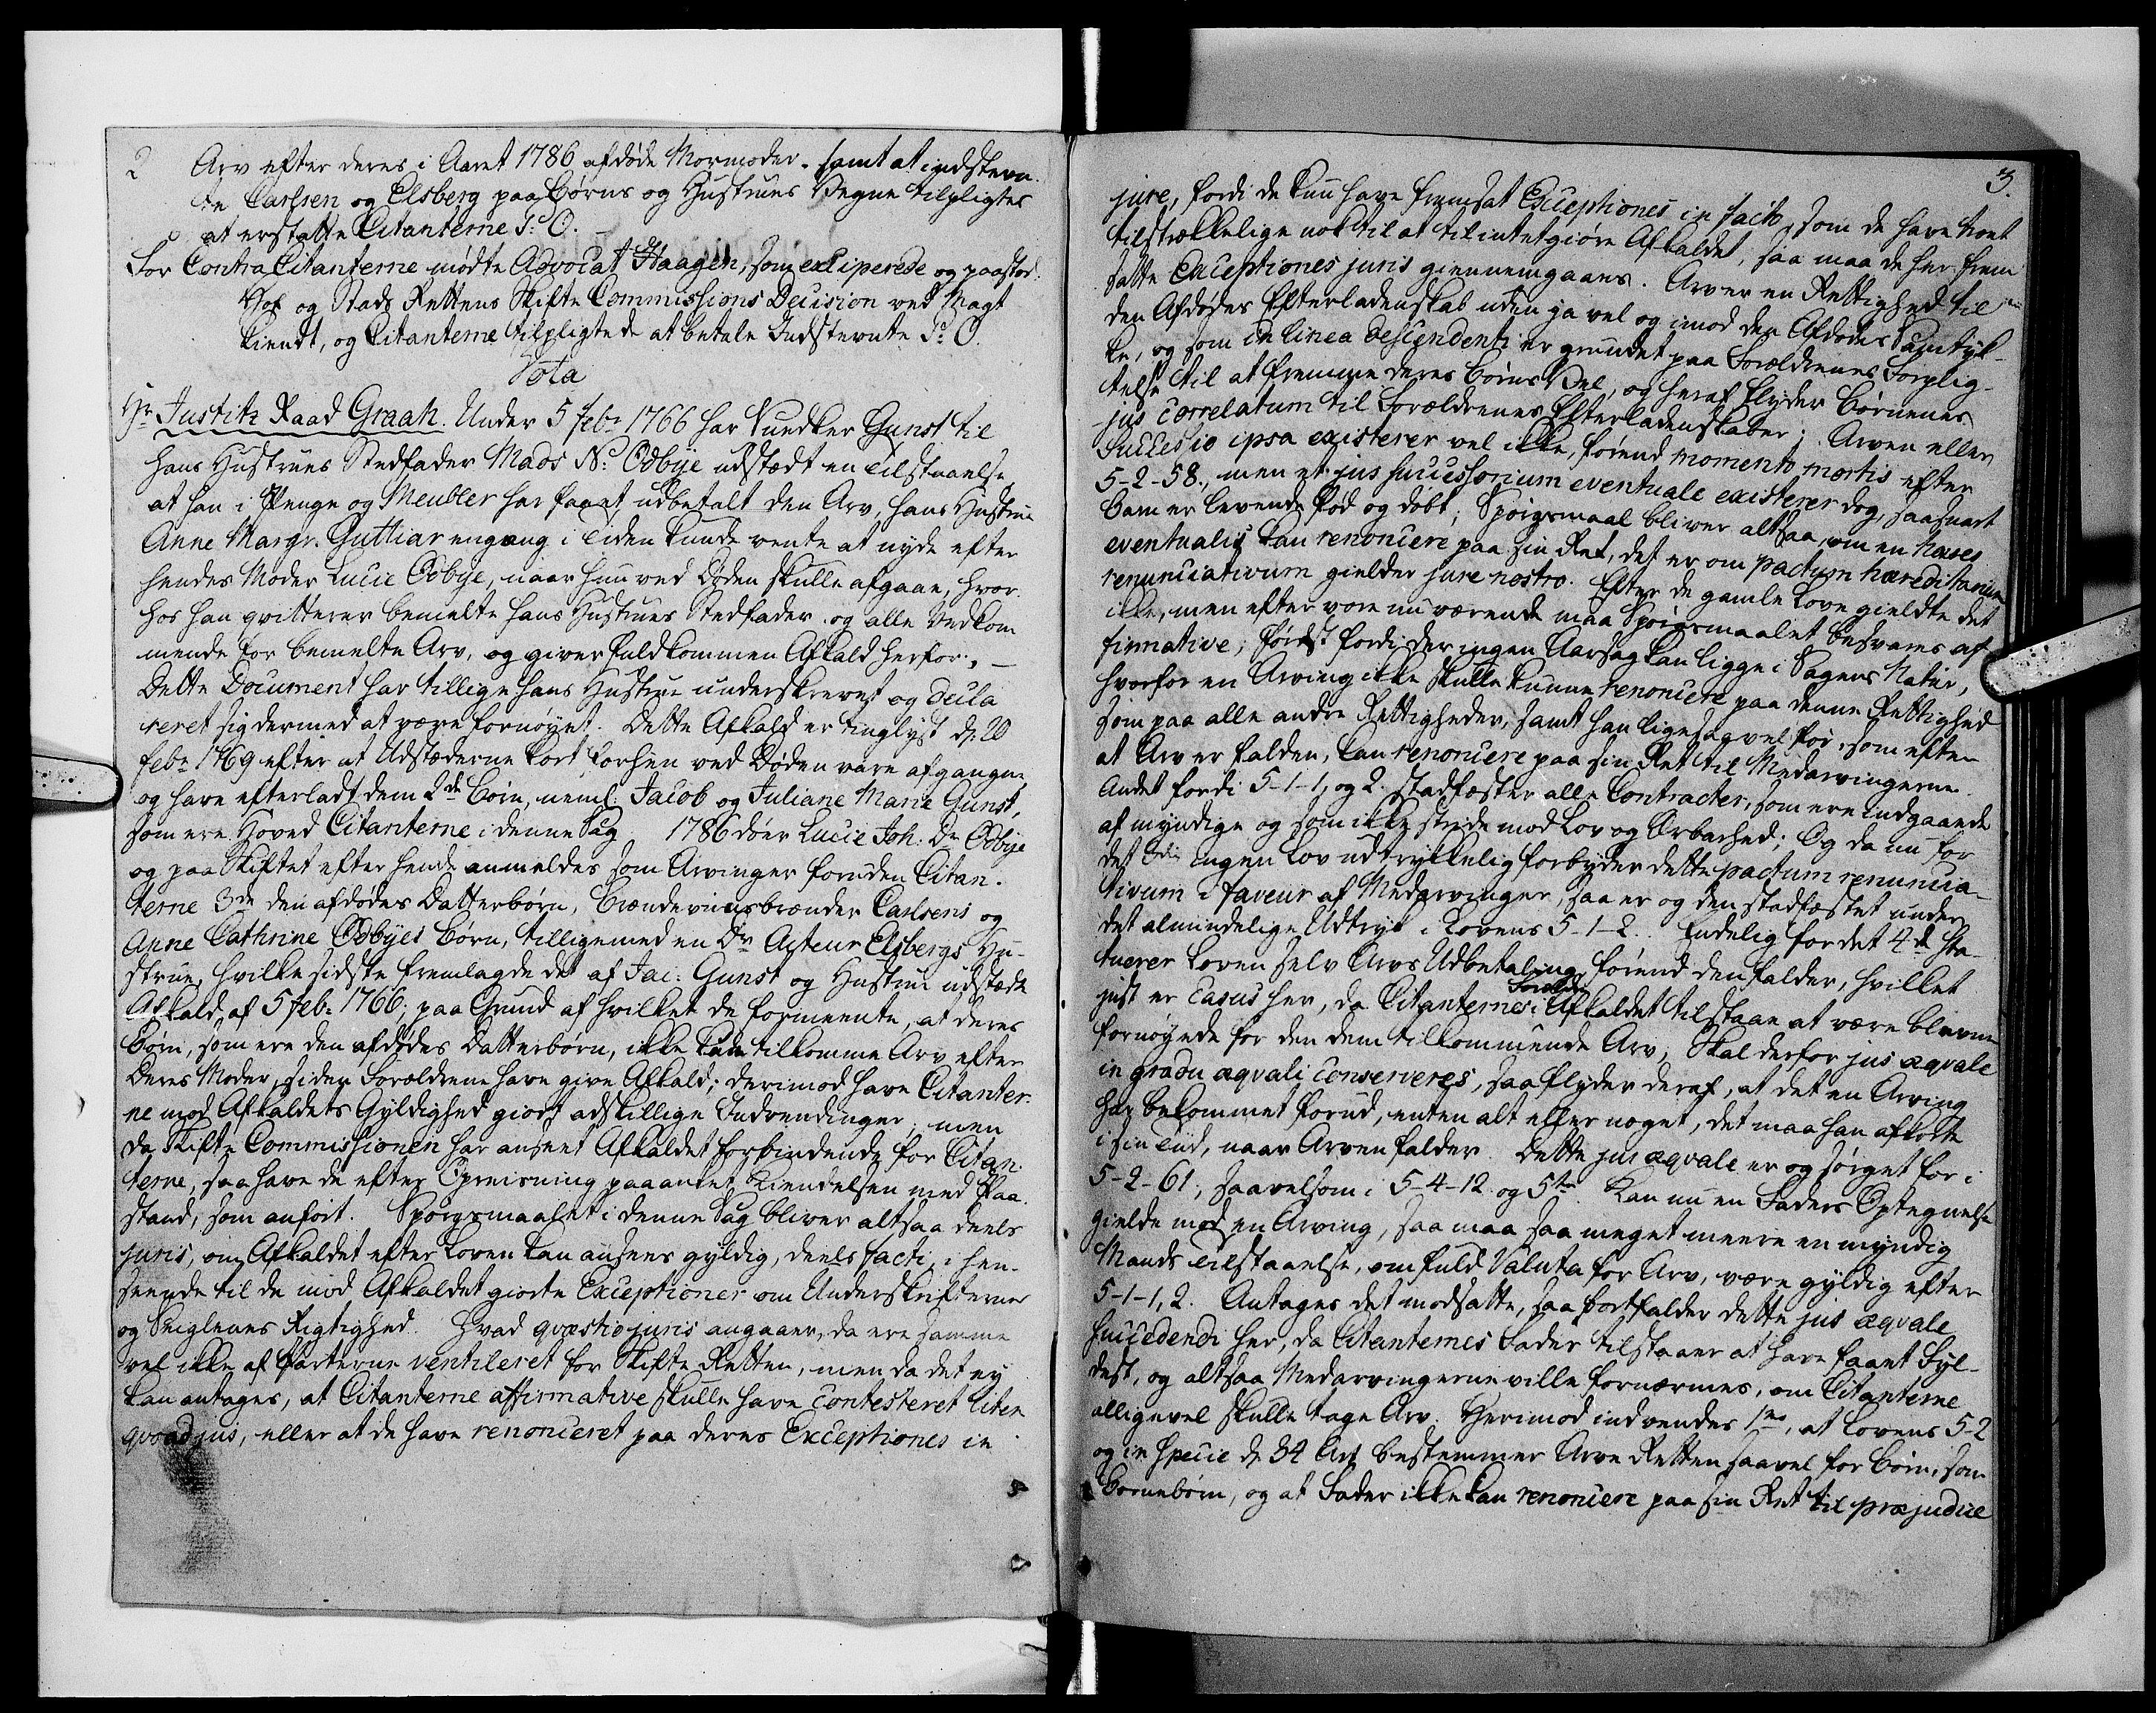 2 Arv efter deres i Aaret 1786 afdøde Mormoder. samt at indstevn-
te Carlsen og Elsberg paa Børns og Hustrues Vegne tilpligtes
at erstatte Citanterne S: O.
For Contra Citanterne mødte Advocat Haagen, som exciperede og paastod
Hof og Stads Rettens Skifte Commissions Decision ved Magt
kiendt, og Citanterne tilpligtede at betale Indstevnte S: O.
Vota
Hr. Justitz Raad Graah. Under 5 Febr: 1766 har Snedker Gunst til
hans Hustrues Stedfader Mads N: Odbye udstædt en Tilstaaelse
at han i Penge og Meubler har faaet udbetalt den Arv, hans Hustrue
Anne Margr. Guttiar engang i Tiden kunde vente at nyde efter
hendes Moder Lucie Odbye, naar hun ved Døden skulle afgaae, hvor-
hos han qvitterer bemelte hans Hustrues Stedfader og alle Vedkom
mende for bemelte Arv, og giver fuldkommen Afkald herfor. —
Dette Document har tillige hans Hustrue underskrevet og decla
reret sig dermed at være fornøyet. Dette Afkald er tinglyst d. 20
Febr: 1769 efter at Udstæderne kort forhen ved Døden vare afgangne,
og have efterladt dem 2de Børn, neml: Jacob og Juliane Marie Gunst,
som ere Hoved Citanterne i denne Sag. 1786 døer Lucie Joh: Dr Odbye
og paa Skiftet efter hende anmeldes som Arvinger foruden Citan-
terne 3de den afdødes Datterbørn, Brændeviinsbrænder Carlsens og
Anne Cathrine Odbyes Børn, tilligemed en Dr. Acteur Elsbergs Hu-
strue, hvilke sidste fremlagde det af Jac: Gunst og Hustrue udstædte
Afkald af 5 Feb: 1766; paa Grund af hvilket de formeente, at deres
Børn, som ere den afdødes Datterbørn, ikke kan tilkomme Arv efter
Deres Moder, siden Forældrene have give Afkald; derimod have Citanter-
ne mod Afkaldets Gyldighed giort adskillige Indvendinger; men
da Skifte Commissionen har anseet Afkaldet forbindende for Citan-
terne, saa have de efter Opreisning paaanket Kiendelsen med Paa-
stand, som anført. Spørgsmaalet i denne Sag bliver altsaa deels
juris, om Afkaldet efter Loven kan ansees gyldig, deels facti, i Hen-
seende til de mod Afkaldet giorte Exceptioner om Underskrifternes
og Seiglenes Rigtighed. Hvad qvæstio juris angaaer, da ere samme
vel ikke af Parterne ventileret for Skifte Retten, men da det ey
kan antages, at Citanterne affirmative skulle have contesteret liten
qvoad jus, eller at de have renonceret paa deres Exceptiones in
3.
jure, fordi de kun have fremsat Exceptiones in facto, som de have troet
tilstrækkelige nok til at tilintetgiøre Afkaldet, saa maa de her frem
satte Exceptiones juris giennemgaaes. Arv er en Rettighed til
den Afdødes Efterladenskab uden ja vel og imod den Afdødes Samtyk-
ke, og som in linea descendenti er grundet paa Forældrenes Forplig-
telse til at fremme deres Børns Vel, og heraf flyder Børnenes
jus correlatum til Forældrenes Efterladenskaber; Arven eller
Successio ipsa existerer vel ikke, førend momento mortis efter
5-2-58., men et jus successorium eventuale existerer dog, saasnart
Barn er levende fød og døbt; Spørgsmaal bliver altsaa, om en hæres
eventualis kan renoncere paa sin Ret, det er om pactum hæreditarium
renunciativum gielder jure nostro. Efter de gamle Love gieldte det
ikke, men efter vore nu værende maa Spørgsmaalet besvares af-
firmative; først fordi der ingen Aarsag kan ligge i Sagens Natur,
hvorfor en Arving ikke skulle kunne renoncere paa denne Rettighed
som paa alle andre Rettigheder, samt han ligesaavel før, som efter
at Arv er falden, kan renoncere paa sin Ret til Medarvingerne.
Andet fordi 5-1-1, og 2. stadfæster alle Contracter, som ere indgaaede
af myndige og som ikke stride mod Lov og Ærbarhed; Og da nu for
det 3die ingen Lov udtrykkelig forbyder dette pactum renuncia-
tivum i faveur af Medarvinger, saa er og den stadfæstet under
det almindelige Udtryk i Lovens 5-1-2. Endelig for det 4de sta-
tuerer Loven selv Arvs Udbetaling førend den falder, hvilket
just er Casus her, da Citanternes Forældre i Afkaldet tilstaae at være blevne
fornøyede for den dem tilkommende Arv; Skal derfor jus æqvale
in gradu æqvali conserveres, saa flyder deraf, at det en Arving
har bekommet forud, enten alt eller noget, det maa han afkorte
i sin Tid, naar Arven falder. Dette jus æqvale er og sørget for i
5-2-61, saavelsom i 5-4-12. og 5te Kan nu en Faders Optegnelse
gielde mod en Arving, saa maa saa meget meere en myndig
Mands Tilstaaelse, om fuld Valuta for Arv, være gyldig efter
5-1-1, 2. Antages det modsatte, saa bortfalder dette jus æqvale
succedendi her, da Citanternes Fader tilstaaer at have faaet Fyl-
dest, og altsaa Medarvingerne ville fornærmes, om Citanterne
alligevel skulle tage Arv. Herimod indvendes 1mo, at Lovens 5-2
og in specie d. 34 Art bestemmer Arve Retten saavel for Børn, som
Børnebørn, og at Fader ikke kan renoncere paa sin Ret til præjudice